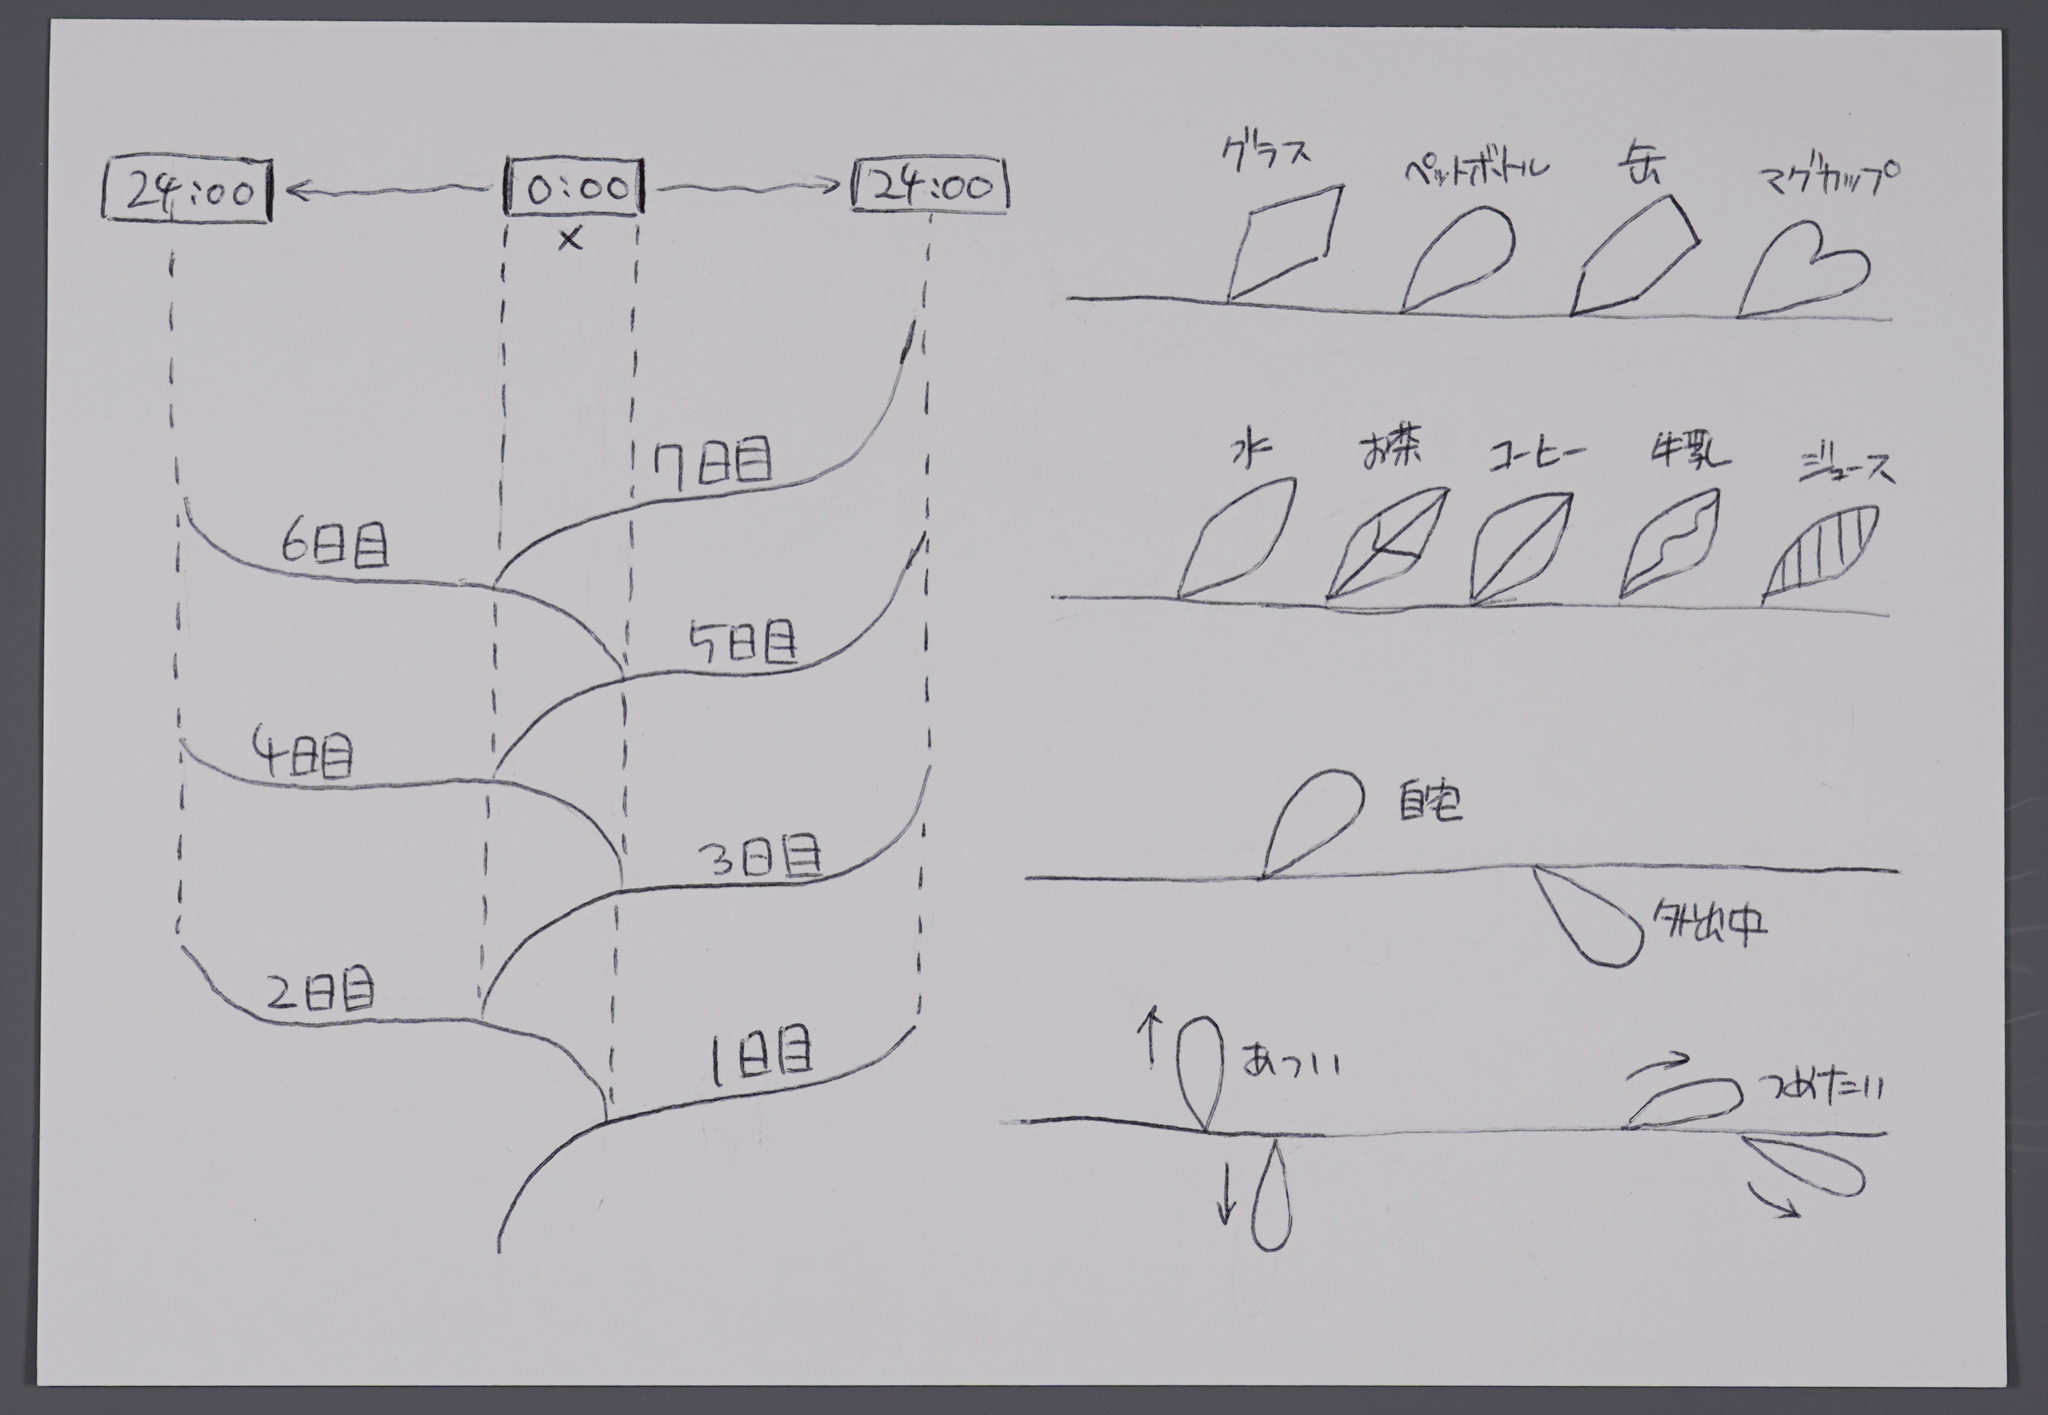 24:00 0:00 24:00
×
7日目
6日目
5日目
4日目
3日目
2日目
1日目
グラス ペットボトル 缶 マグカップ
水 お茶 コーヒー 牛乳 ジュース
自宅
外出中
あつい つめたい